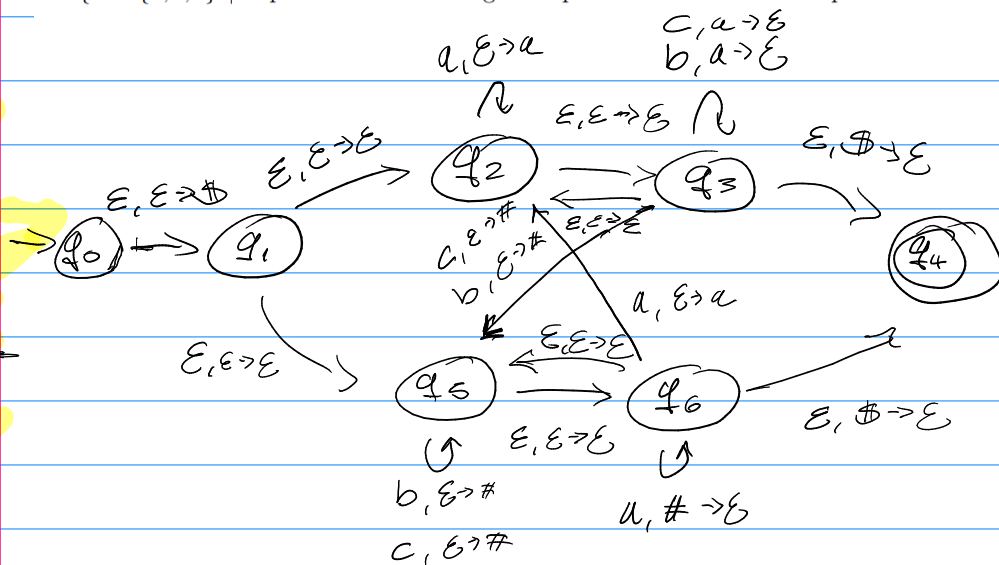 c, a→ε
a, ε→a
b, a→ε
ε, ε→ε
ε, $→ε
ε, ε→ε
q2
q3
ε, ε→$
ε, ε→ε
c, ε→#
q0
q1
q4
b, ε→#
a, ε→a
ε, ε→ε
ε, ε→ε
q5
q6
ε, $→ε
ε, ε→ε
b, ε→#
a, # →ε
c, ε→#